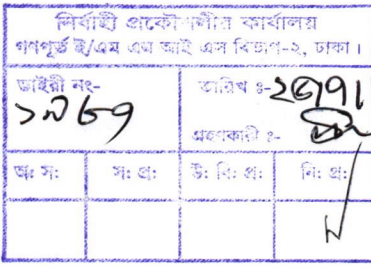 নির্বাহী প্রকৌশলীর কার্যালয়
গণপূর্ত ই/এম এম আই এস বিভাগ-২, ঢাকা।
ডাইরী নং-
তারিখ ঃ-
১৯৬৭
গ্রহণকারী ঃ-
অঃ সঃ
সঃ প্রঃ
উঃ বিঃ প্রঃ
নিঃ প্রঃ